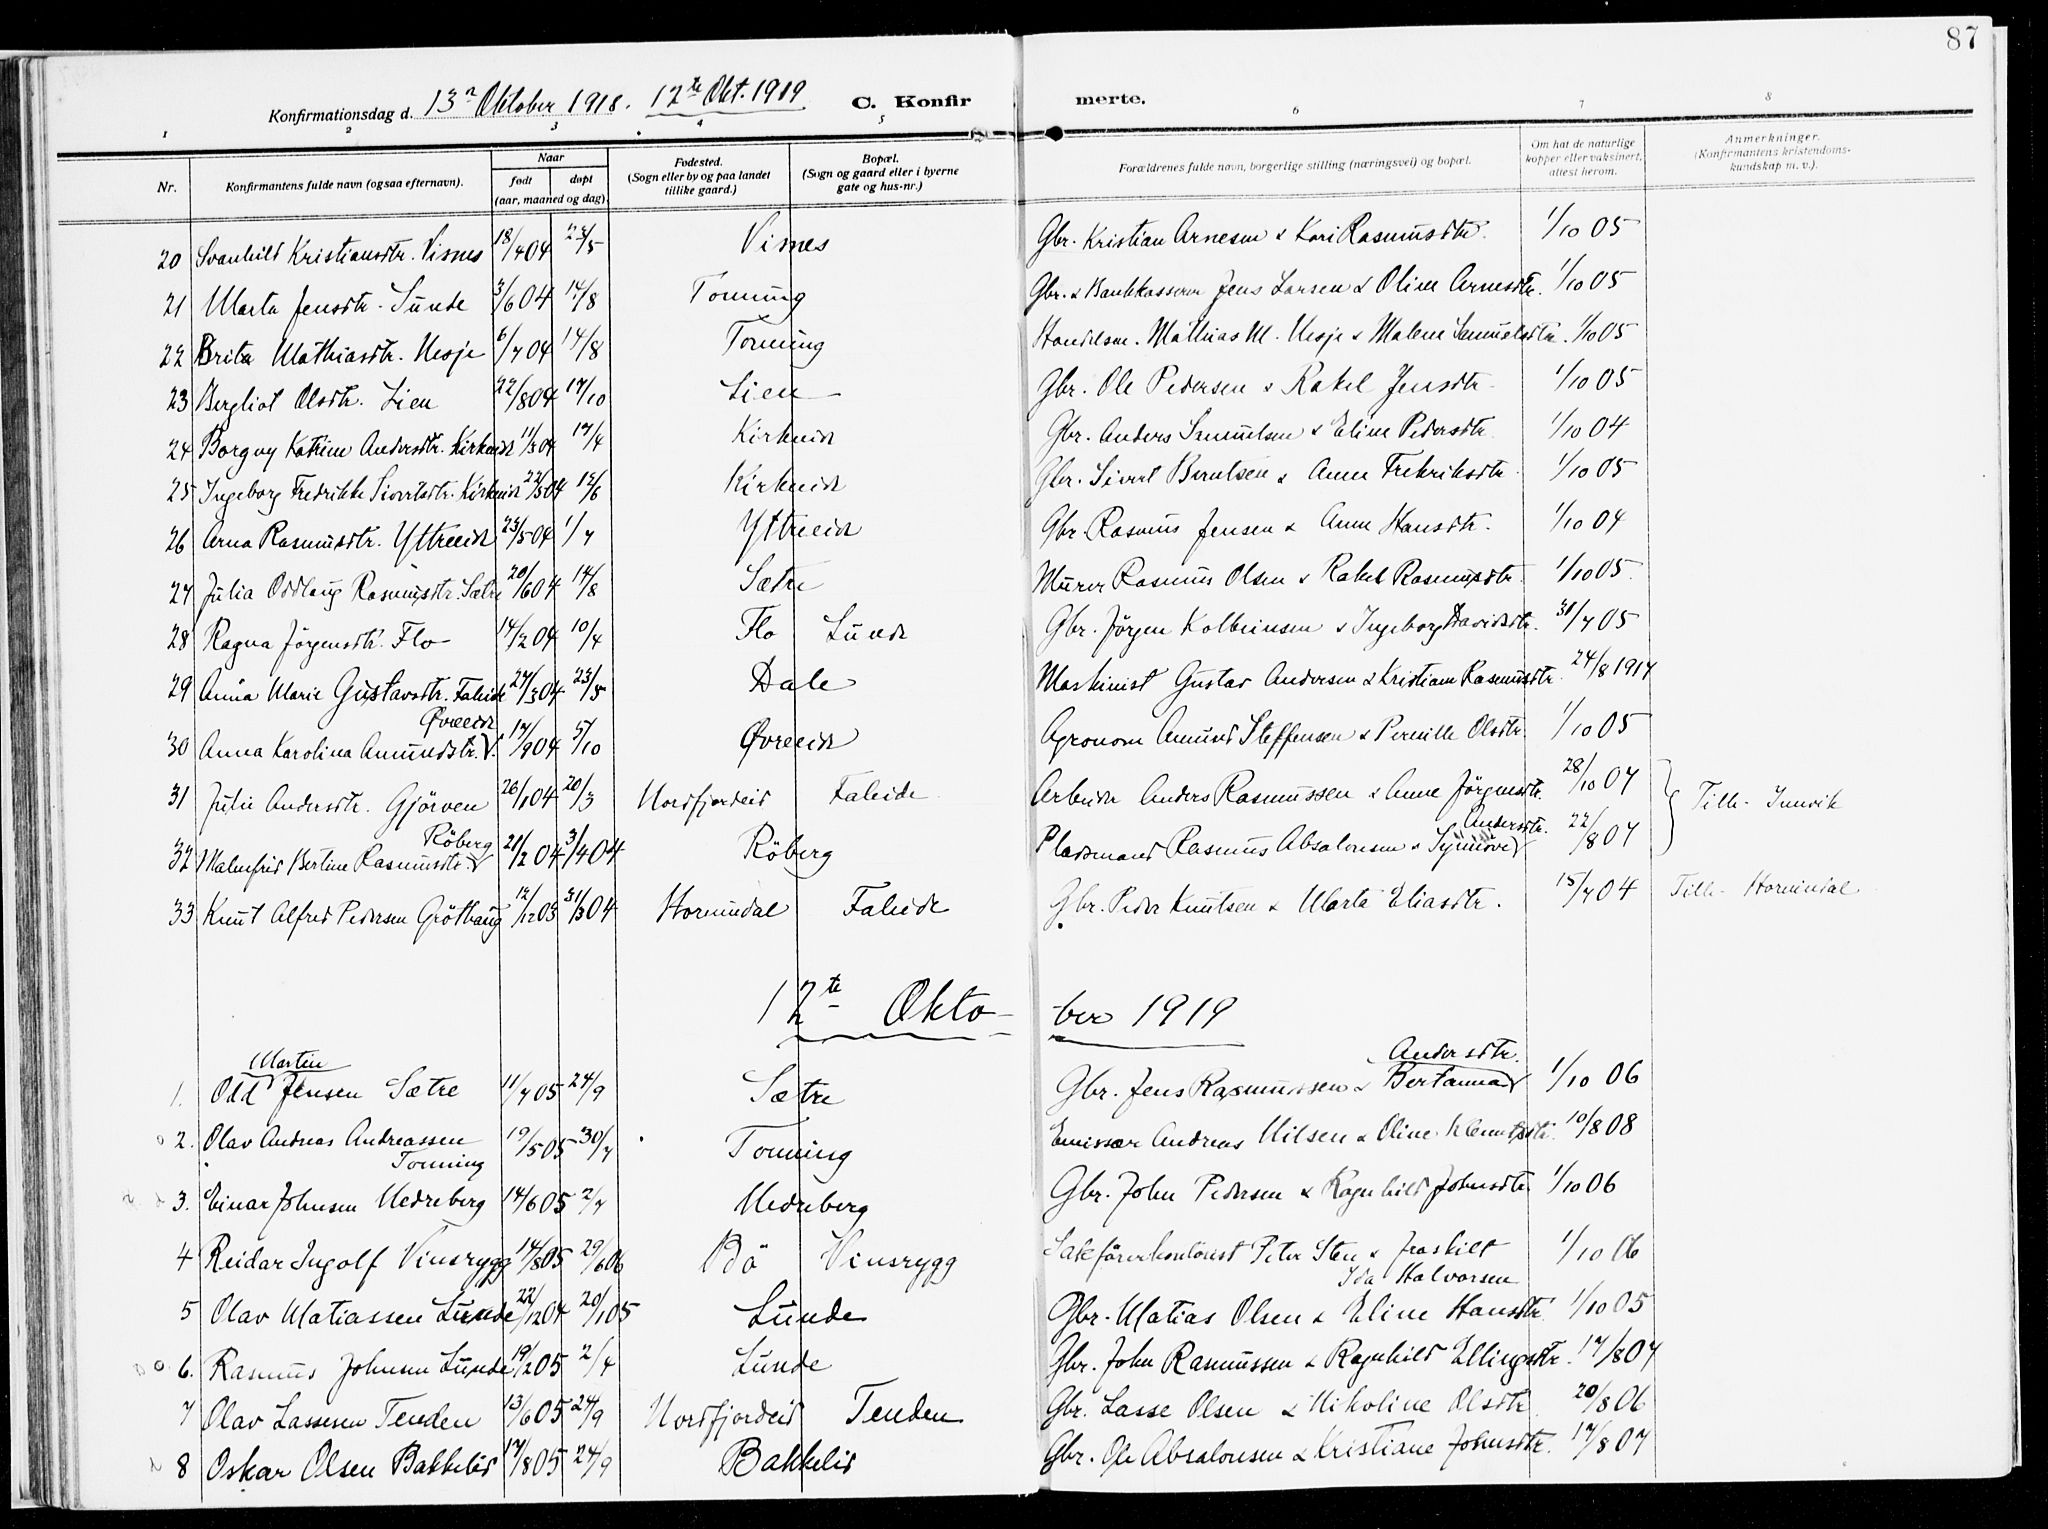 87
Konfirmationsdag d. 13de Oktober 1918. 12te Okt. 1919 C. Konfir merte.
1 2 3 4 5 6 7 8
Nr. Konfirmantens fulde navn (ogsaa efternavn). Naar født døpt (aar, maaned og dag). Fødested. (Sogn eller by og paa landet tillike gaard.) Bopæl. (Sogn og gaard eller i byerne gate og hus-nr.) Forældrenes fulde navn, borgerlige stilling (næringsvei) og bopæl. Om hat de naturlige kopper eller vaksinert, attest herom. Anmerkninger. (Konfirmantens kristendoms-kundskap m. v.).
20 Svanhild Kristiansdtr. Visnes 18/4 04 23/5 Visnes Gbr. Kristian Arnesen & Kari Rasmusdtr. 1/10 05
21 Marta Jensdtr. Sunde 3/6 04 14/8 Tonning Gbr. & Bankkasserer Jens Larsen & Oline Arnesdtr. 1/10 05
22 Brita Mathiasdtr. Nesje 6/7 04 14/8 Tonning Handelsm. Mathias M. Nesje & Malene Samuelsdtr. 1/10 05
23 Bergliot Olsdtr. Lien 22/8 04 17/10 Lien Gbr. Ole Pedersen & Rakel Jensdtr. 1/10 05
24 Borgny Katrine Andersdtr. Kirkeide 11/3 04 17/4 Kirkeide Gbr. Anders Samuelsen & Eline Pedersdtr. 1/10 04
25 Ingeborg Fredrikke Sivertsdtr. Kirkeide 22/5 04 12/6 Kirkeide Gbr. Sivert Berntsen & Anne Fredriksdtr. 1/10 05
26 Arna Rasmusdtr. Yttreeide 23/5 04 1/7 Yttreeide Gbr. Rasmus Jensen & Anne Hansdtr. 1/10 04
27 Julia Oddlaug Rasmusdtr. Sætre 20/6 04 14/8 Sætre Murer Rasmus Olsen & Rakel Rasmusdtr. 1/10 05.
28 Ragna Jörgensdtr. Flo 14/2 04 10/4 Flo Lunde Gbr. Jörgen Kolbeinsen & Ingeborg Davidsdtr. 31/7 05
29 Anna Marie Gustavsdtr. Faleide 27/3 04 23/5 Dale Maskinist Gustav Andersen & Kristiane Rasmusdtr. 24/8 1917
Øvreeide
30 Anna Karolina Amundsdtr. 17/9 04 5/10 Øvreeide Agronom Amund Steffensen & Pernille Olsdtr. 1/10 05
31 Julie Andersdtr. Gjörven 26/1 04 20/3 Nordfjordeid Faleide Arbeider Anders Rasmussen & Anne Jörgensdtr. 28/10 07 Tilh. Innvik
Röberg Andersdtr.
32 Malmfrid Bertine Rasmusdtr. 21/2 04 3/4 04 Röberg Pladsmand Rasmus Absalonsen & Synnöve 22/8 07
33 Knut Alfred Pedersen Gröthaug 12/12 03 31/3 04 Hornindal Faleide Gbr. Peder Knutsen & Marta Eliasdtr. 15/7 04 Tilh. Hornindal
12te Okto- ber 1919
Martin Andersdtr.
1. Odd Jensen Sætre 11/7 05 24/9 Sætre Gbr. Jens Rasmussen & Bertanna 1/10 06
2. Olav Andreas Andreassen 19/5 05 30/7 Tonning Emissær Andreas Nilsen & Oline Klemetsdtr. 10/8 08
Tonning
3. Einar Johnsen Nedreberg 14/6 05 2/7 Nedreberg Gbr. John Pedersen & Ragnhild Johnsdtr. 1/10 06
4 Reidar Ingolf Vinsrygg 14/8 05 29/6 06 Bö Vinsrygg Sakförerkontorist Peter Sten & fraskilt 1/10 06
Ida Halvorsen
5 Olav Matiassen Lunde 22/12 04 20/1 05 Lunde Gbr. Matias Olsen & Eline Hansdtr. 1/10 05
6. Rasmus Johnsen Lunde 19/2 05 2/4 Lunde Gbr. John Rasmussen & Ragnhild Ellingsdtr. 17/8 07
7 Olav Lassesen Tenden 13/6 05 24/9 Nordfjordeid Tenden Gbr. Lasse Olsen & Nikoline Olsdtr. 20/8 06
8 Oskar Olsen Bakkelid 17/8 05 24/9 Bakkelid Gbr. Ole Absalonsen & Kristiane Johnsdtr. 17/8 07